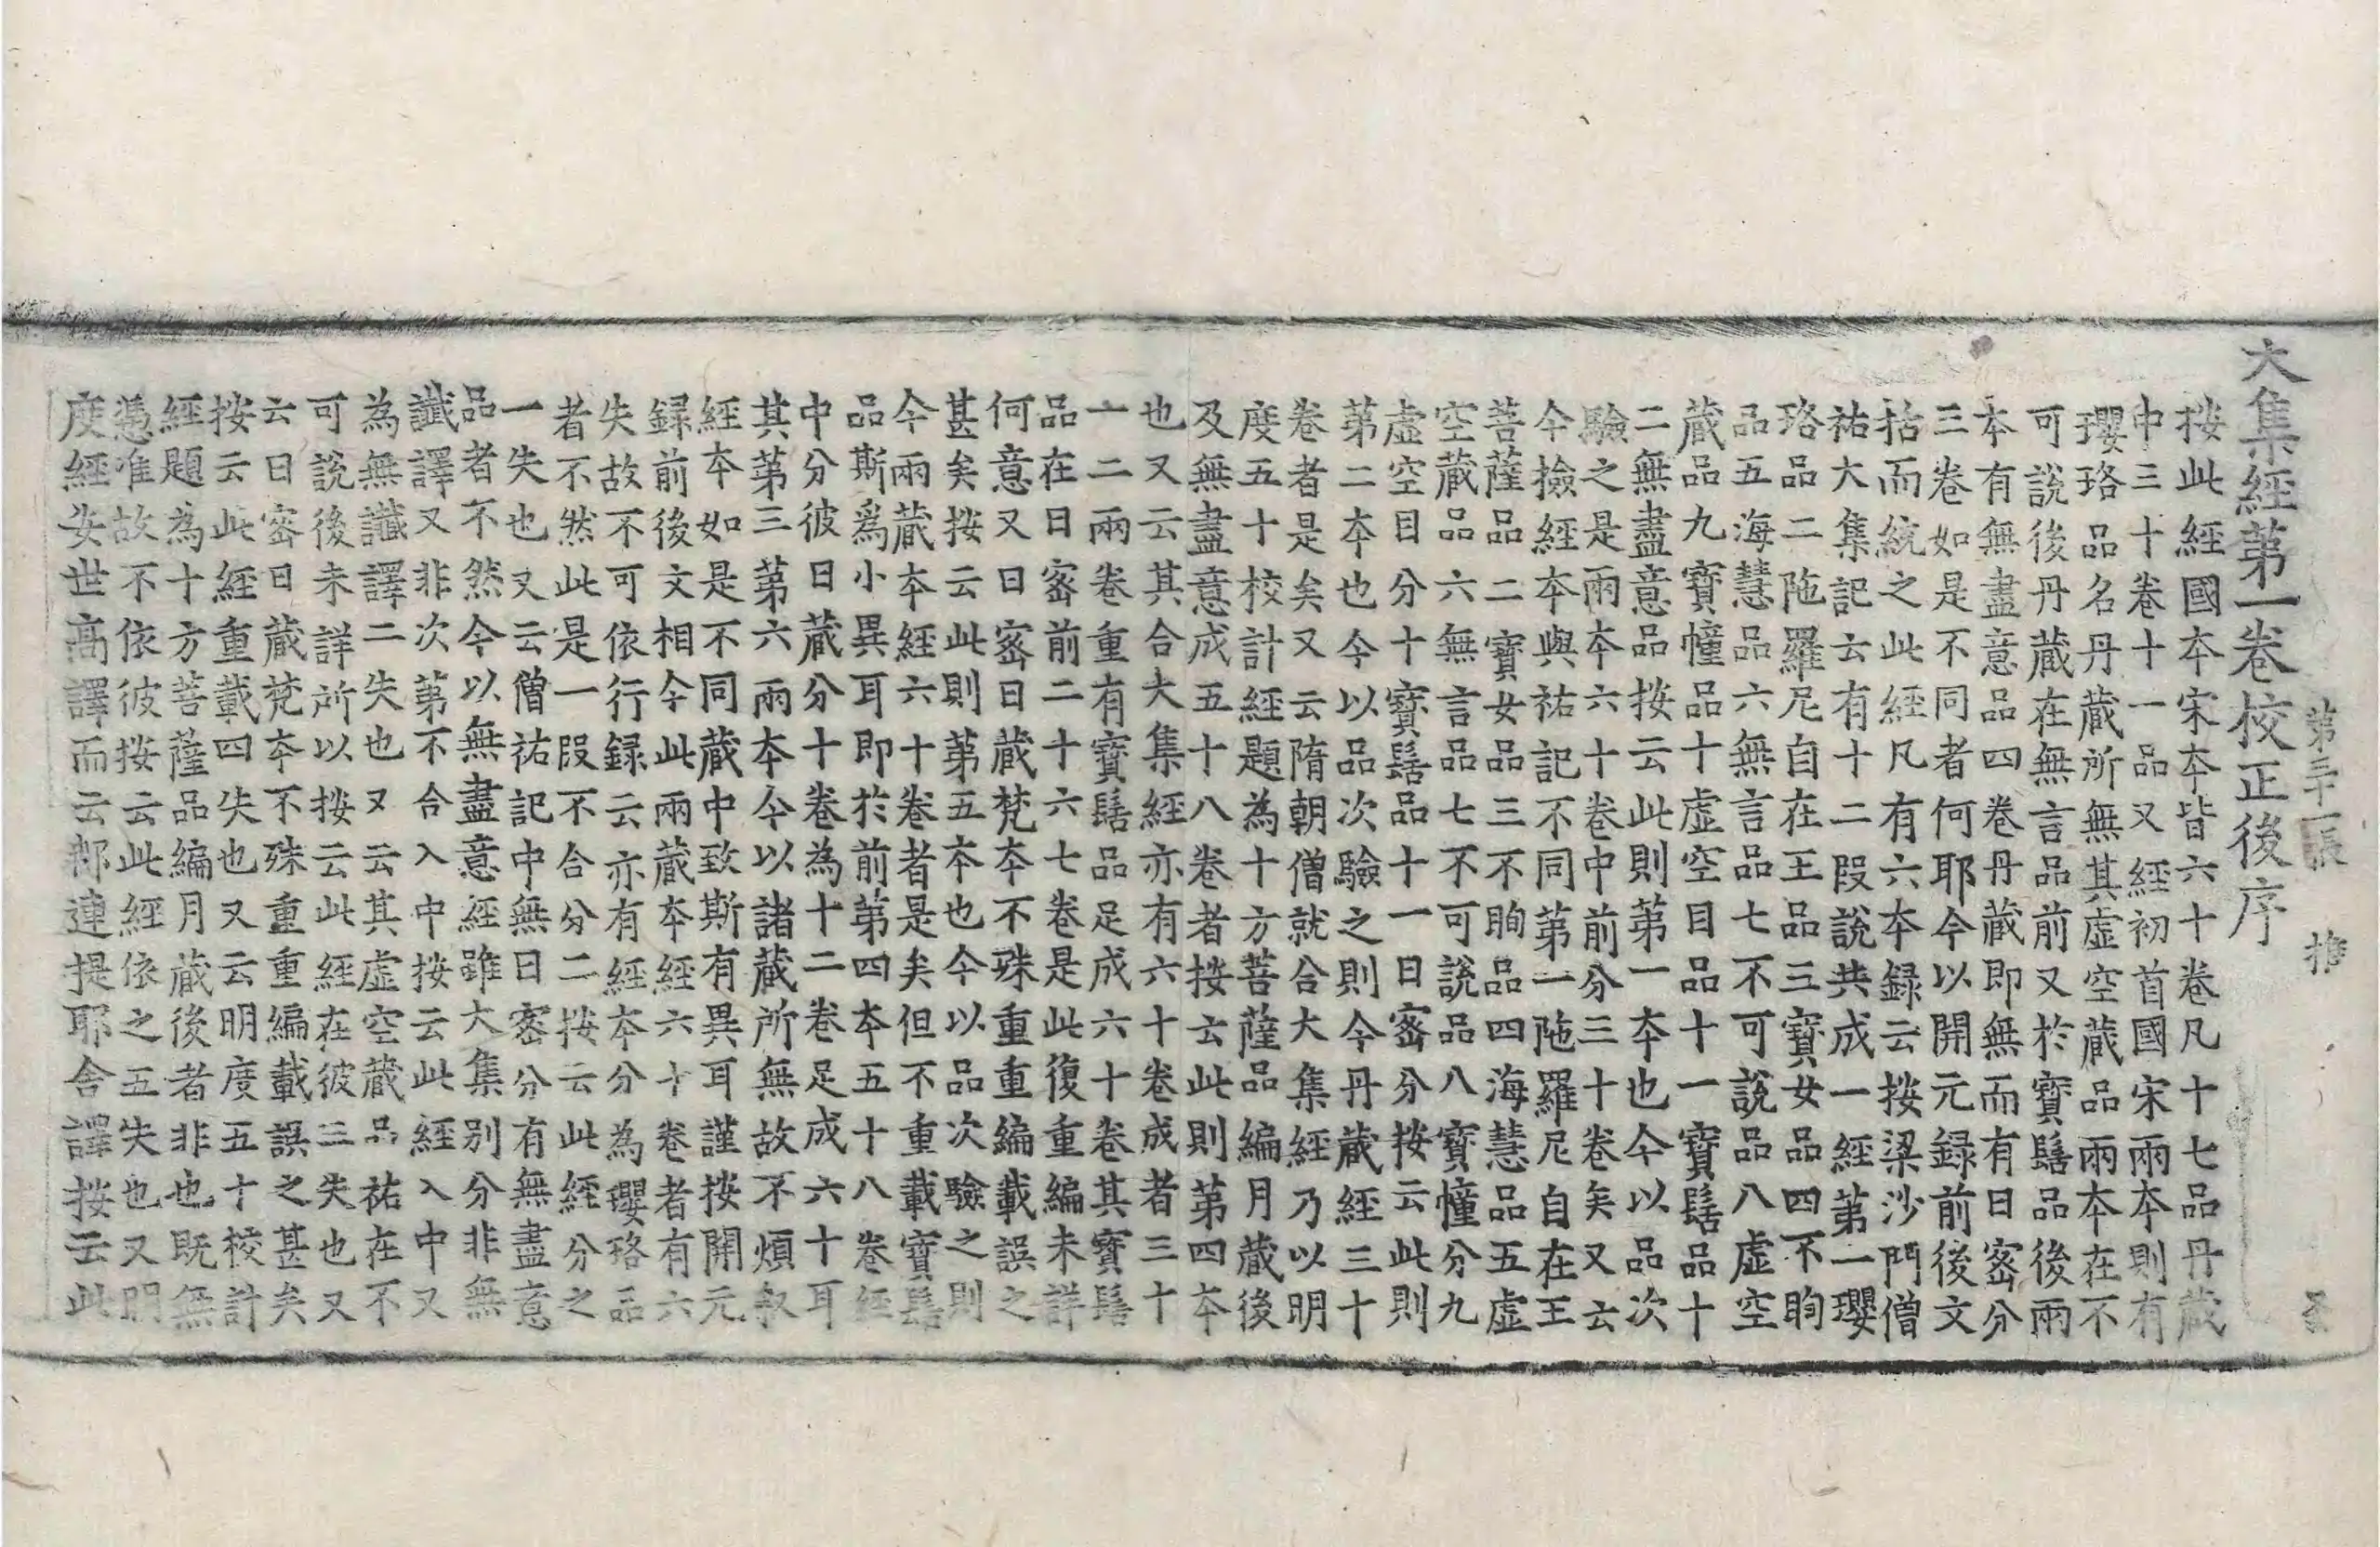 大集經第一卷校正後序
按此經國本宋本皆六十卷凡十七品丹藏
中三十卷十一品又經初首國宋兩本則有
瓔珞品名丹藏所無其虛空藏品兩本在不
可說後丹藏在無言品前又於寶髻品後兩
本有無盡意品四卷丹藏即無而有日密分
三卷如是不同者何耶今以開元錄前後文
括而統之此經凡有六本錄云按梁沙門僧
祐大集記云有十二段說共成一經第一瓔
珞品二陁羅尼自在王品三寶女品四不眴
品五海慧品六無言品七不可說品八虛空
藏品九寶幢品十虛空目品十一寶髻品十
二無盡意品按云此則第一本也今以品次
驗之是兩本六十卷中前分三十卷矣又云
今撿經本與祐記不同第一陁羅尼自在王
菩薩品二寶女品三不眴品四海慧品五虛
空藏品六無言品七不可說品八寶幢分九
虛空目分十寶髻品十一日密分按云此則
第二本也今以品次驗之則今丹藏經三十
卷者是矣又云隋朝僧就合大集經乃以明
度五十校計經題為十方菩薩品編月藏後
及無盡意成五十八卷者按云此則第四本
也又云其合大集經亦有六十卷成者三十
一二兩卷重有寶髻品足成六十卷其寶髻
品在日密前二十六七卷是此復重編未詳
何意又日密日藏梵本不殊重重編載誤之
甚矣按云此則第五本也今以品次驗之則
今兩藏本經六十卷者是矣但不重載寶髻
品斯爲小異耳即於前第四本五十八卷經
中分彼日藏分十卷為十二卷足成六十耳
其第三第六兩本今以諸藏所無故不煩叙
經本如是不同藏中致斯有異耳謹按開元
錄前後文相今此兩藏本經六十卷者有六
失故不可依行錄云亦有經本分為瓔珞品
者不然此是一段不合分二按云此經分之
一失也又云僧祐記中無日密分有無盡意
品者不然今以無盡意經雖大集別分非無
讖譯又非次第不合入中按云此經入中又
為無讖譯二失也又云其虛空藏品祐在不
可說後未詳所以按云此經在彼三失也又
云日密日藏梵本不殊重重編載誤之甚矣
按云此經重載四失也又云明度五十校計
經題為十方菩薩品編月藏後者非也既無
憑准故不依彼按云此經依之五失也又明
度經安世高譯而云那連提耶舍譯按云此
第三十一張　推